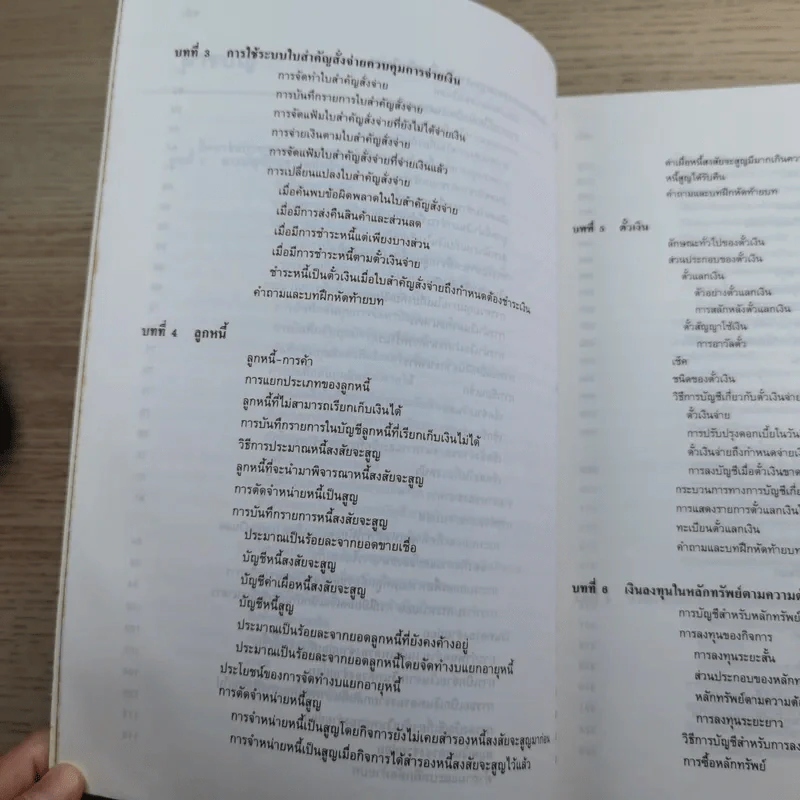 บทที่ 3 การใช้ระบบใบสำคัญสั่งจ่ายควบคุมการจ่ายเงิน
การจัดทำใบสำคัญสั่งจ่าย
การบันทึกรายการใบสำคัญสั่งจ่าย
การจัดแฟ้มใบสำคัญสั่งจ่ายที่ยังไม่ได้จ่ายเงิน
การจ่ายเงินตามใบสำคัญสั่งจ่าย
การจัดแฟ้มใบสำคัญสั่งจ่ายที่จ่ายเงินแล้ว
การเปลี่ยนแปลงใบสำคัญสั่งจ่าย
เมื่อค้นพบข้อผิดพลาดในใบสำคัญสั่งจ่าย
เมื่อมีการส่งคืนสินค้าและส่วนลด
เมื่อมีการชำระหนี้แต่เพียงบางส่วน
เมื่อมีการชำระหนี้ตามตั๋วเงินจ่าย
ชำระหนี้เป็นตั๋วเงินเมื่อใบสำคัญสั่งจ่ายถึงกำหนดต้องชำระเงิน
คำถามและบทฝึกหัดท้ายบท
บทที่ 4 ลูกหนี้
ลูกหนี้-การค้า
การแยกประเภทของลูกหนี้
ลูกหนี้ที่ไม่สามารถเรียกเก็บเงินได้
การบันทึกรายการในบัญชีลูกหนี้ที่เรียกเก็บเงินไม่ได้
วิธีการประมาณหนี้สงสัยจะสูญ
ลูกหนี้ที่จะนำมาพิจารณาหนี้สงสัยจะสูญ
การตัดจำหน่ายหนี้เป็นสูญ
การบันทึกรายการหนี้สงสัยจะสูญ
ประมาณเป็นร้อยละจากยอดขายเชื่อ
บัญชีหนี้สงสัยจะสูญ
บัญชีค่าเผื่อหนี้สงสัยจะสูญ
บัญชีหนี้สูญ
ประมาณเป็นร้อยละจากยอดลูกหนี้ที่ยังคงค้างอยู่
ประมาณเป็นร้อยละจากยอดลูกหนี้โดยจัดทำงบแยกอายุหนี้
ประโยชน์ของการจัดทำงบแยกอายุหนี้
การตัดจำหน่ายหนี้สูญ
การจำหน่ายหนี้เป็นสูญโดยกิจการยังไม่เคยสำรองหนี้สงสัยจะสูญมาก่อน
การจำหน่ายหนี้เป็นสูญเมื่อกิจการได้สำรองหนี้สงสัยจะสูญไว้แล้ว
ค่าเผื่อหนี้สงสัยจะสูญมีมากเกินควา
หนี้สูญได้รับคืน
คำถามและบทฝึกหัดท้ายบท
บทที่ 5 ตั๋วเงิน
ลักษณะทั่วไปของตั๋วเงิน
ส่วนประกอบของตั๋วเงิน
ตั๋วแลกเงิน
ตัวอย่างตั๋วแลกเงิน
การสลักหลังตั๋วแลกเงิน
ตั๋วสัญญาใช้เงิน
การอาวัลตั๋ว
เช็ค
ชนิดของตั๋วเงิน
วิธีการบัญชีเกี่ยวกับตั๋วเงินจ่าย
ตั๋วเงินจ่าย
การปรับปรุงดอกเบี้ยในวัน
ตั๋วเงินจ่ายถึงกำหนดจ่ายเงิ
การลงบัญชีเมื่อตั๋วเงินขาด
กระบวนการทางการบัญชีเกี่
การแสดงรายการตั๋วแลกเงินใ
ทะเบียนตั๋วแลกเงิน
คำถามและบทฝึกหัดท้ายบท
บทที่ 6 เงินลงทุนในหลักทรัพย์ตามความต้
การบัญชีสำหรับหลักทรัพย์
การลงทุนของกิจการ
การลงทุนระยะสั้น
ส่วนประกอบของหลักท
หลักทรัพย์ตามความต้อ
การลงทุนระยะยาว
วิธีการบัญชีสำหรับการลง
การซื้อหลักทรัพย์